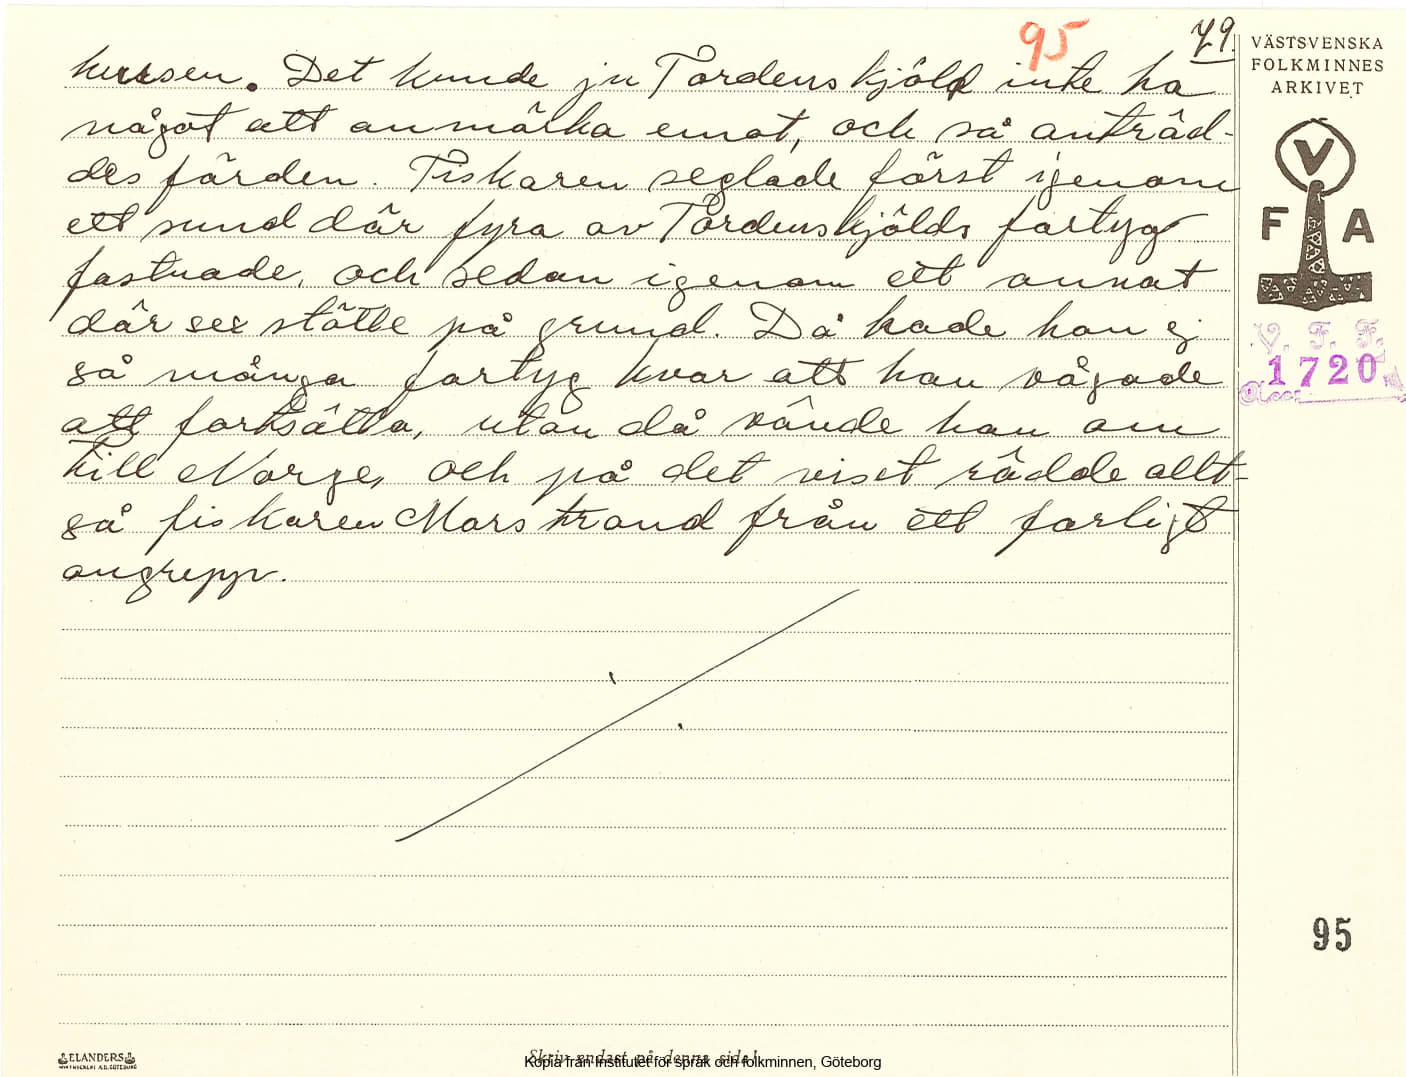 95
79.
kursen. Det kunde ju Tordenskjöld inte ha
något att anmärka emot, och så anträd-
des färden. Fiskaren seglade först igenom
ett sund där fyra av Tordenskjölds fartyg
fastnade, och sedan igenom ett annat
där sex stötte på grund. Då hade han ej
så många fartyg kvar att han vågade
att fortsätta, utan då vände han om
till Norge, och på det viset rädde allt-
så fiskaren Marstrand från ett farligt
angrepp.
VÄSTSVENSKA
FOLKMINNES
ARKIVET
V
F A
V. F. F.
1720
Acc:
95
ELANDERS
Skriv endast på denna sida!
Kopia från Institutet för språk och folkminnen, Göteborg